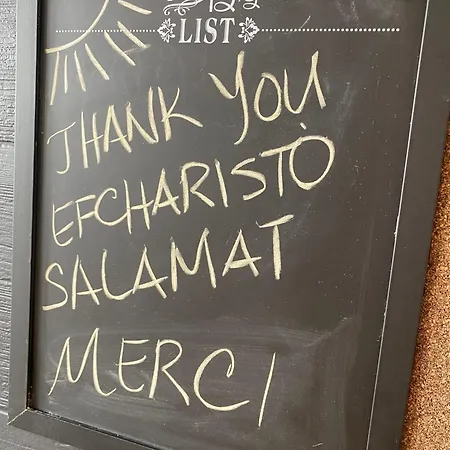 LIST
THANK YOU
EFCHARISTÒ
SALAMAT
MERCI